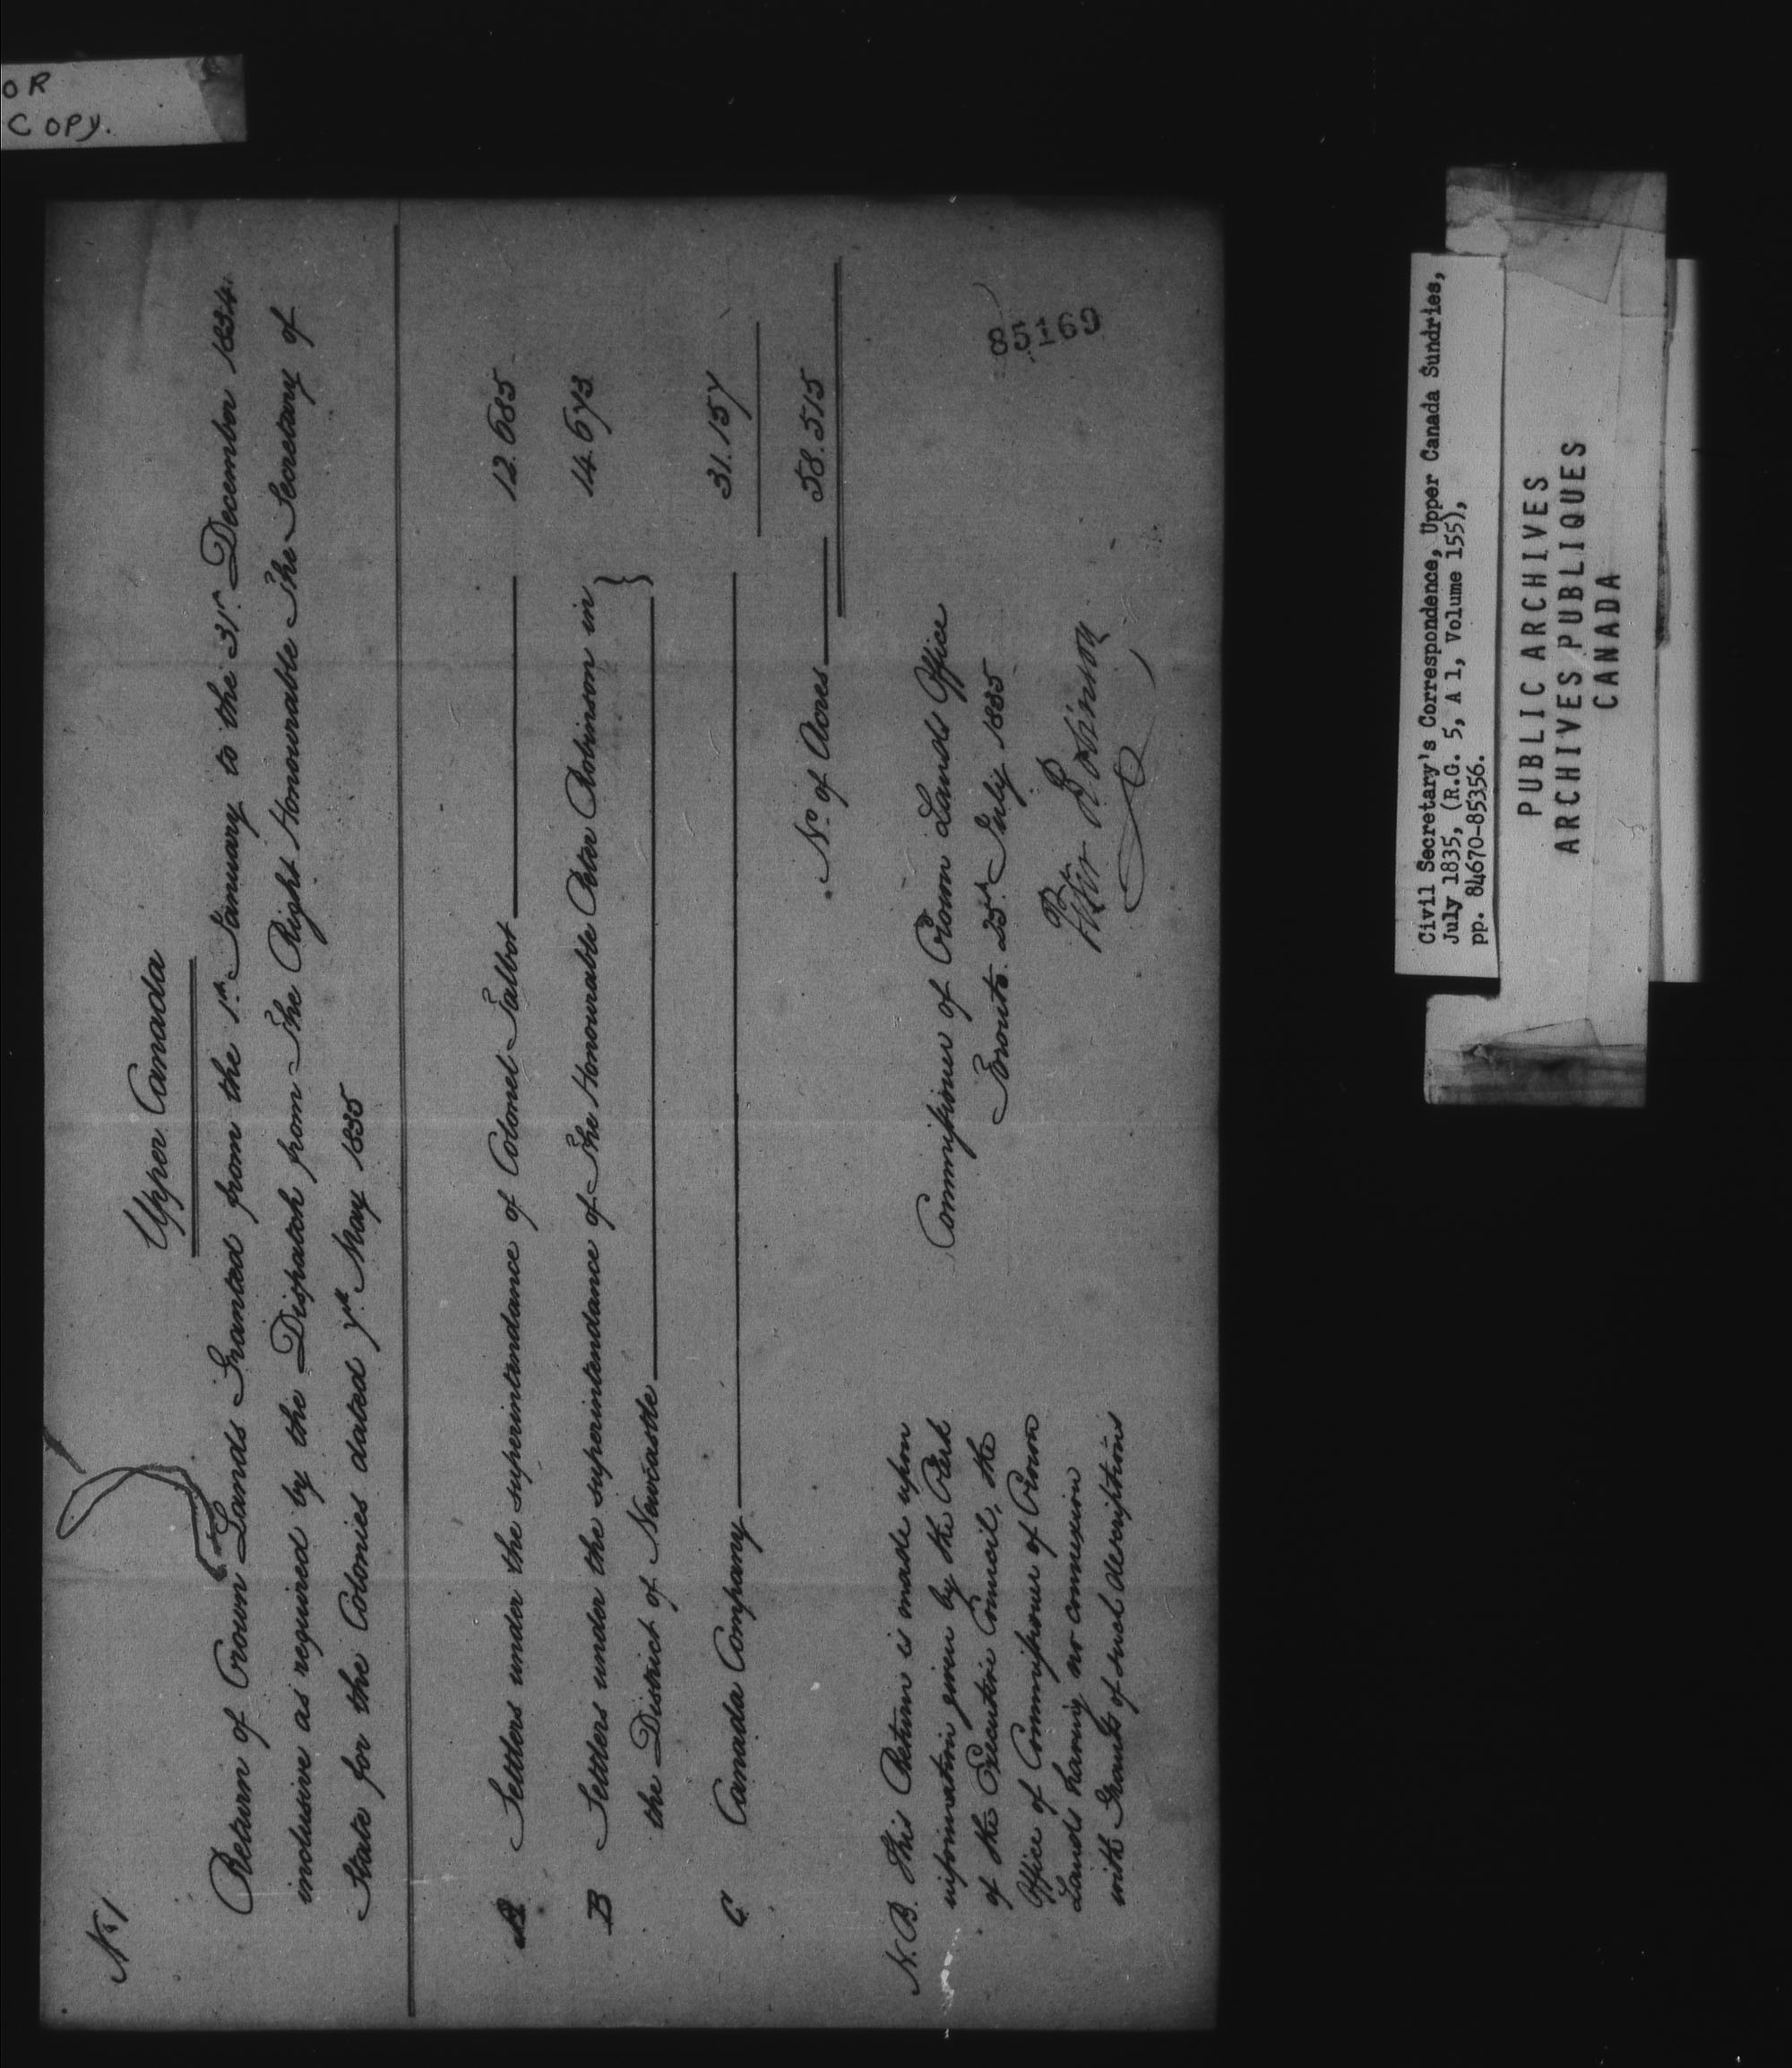 OR
COPY.
No 1
Upper Canada
Return of Crown Lands Granted from the 1st January to the 31st December 1834
inclusive as required by the Dispatch from The Right Honourable The Secretary of
State for the Colonies dated 7th May 1835
A Settlers under the superintendance of Colonel Talbot 12.685
B Settlers under the superintendance of The Honourable Peter Robinson in
the District of Newcastle } 14.673
C Canada Company 31.157
No of Acres 58.515
N.B. This Return is made upon
information given by the Clerk
of the Executive Council, the
Office of Commissioner of Crown
Lands having no connexion
with Grants of such descriptions
Commissioner of Crown Lands Office
Toronto 25th July 1835
Peter Robinson
85169
Civil Secretary's Correspondence, Upper Canada Sundries,
July 1835, (R.G. 5, A 1, Volume 155),
pp. 84670-85356.
PUBLIC ARCHIVES
ARCHIVES PUBLIQUES
CANADA